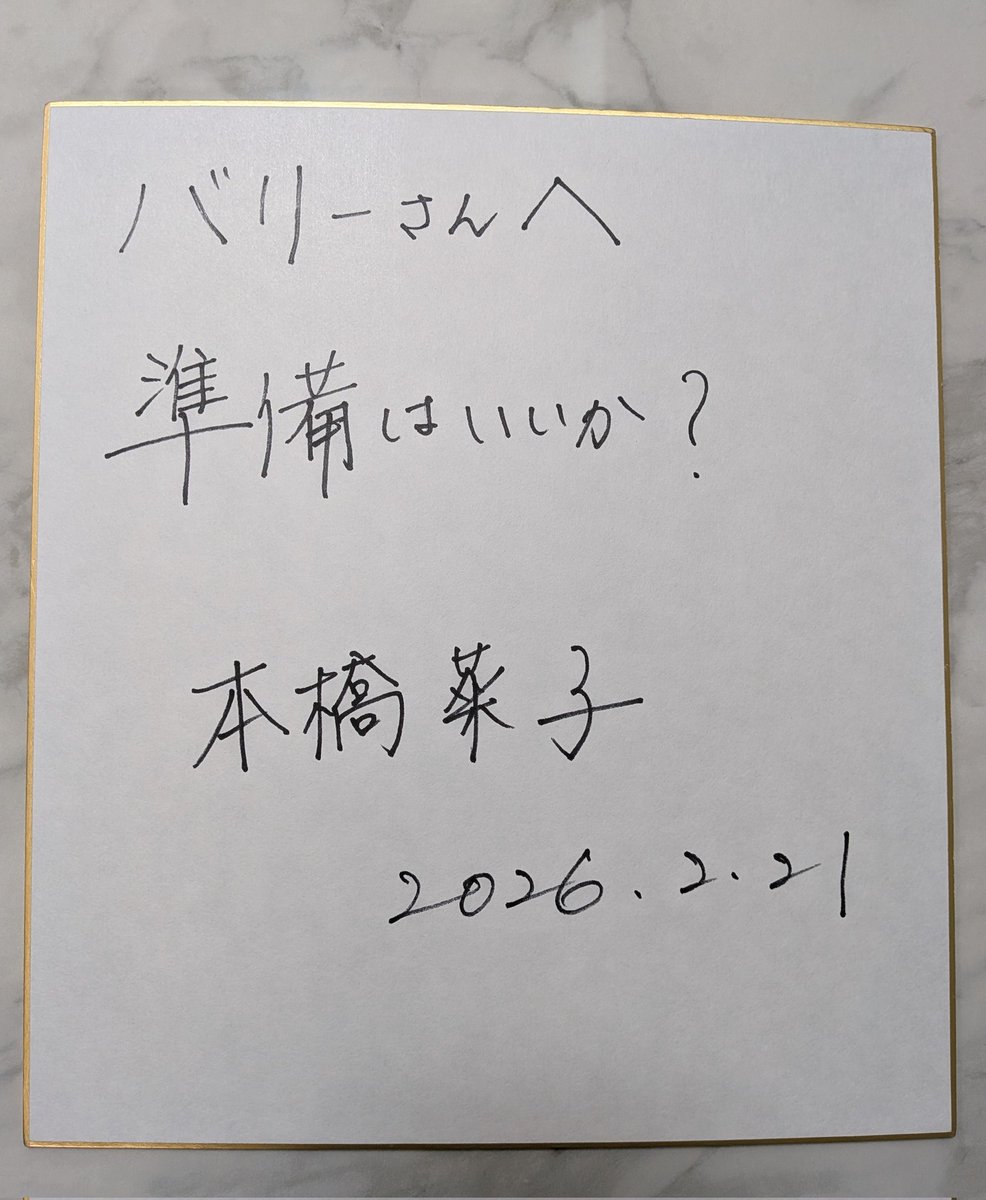 バリーさんへ
準備はいいか?
本橋菜子
2026.2.21